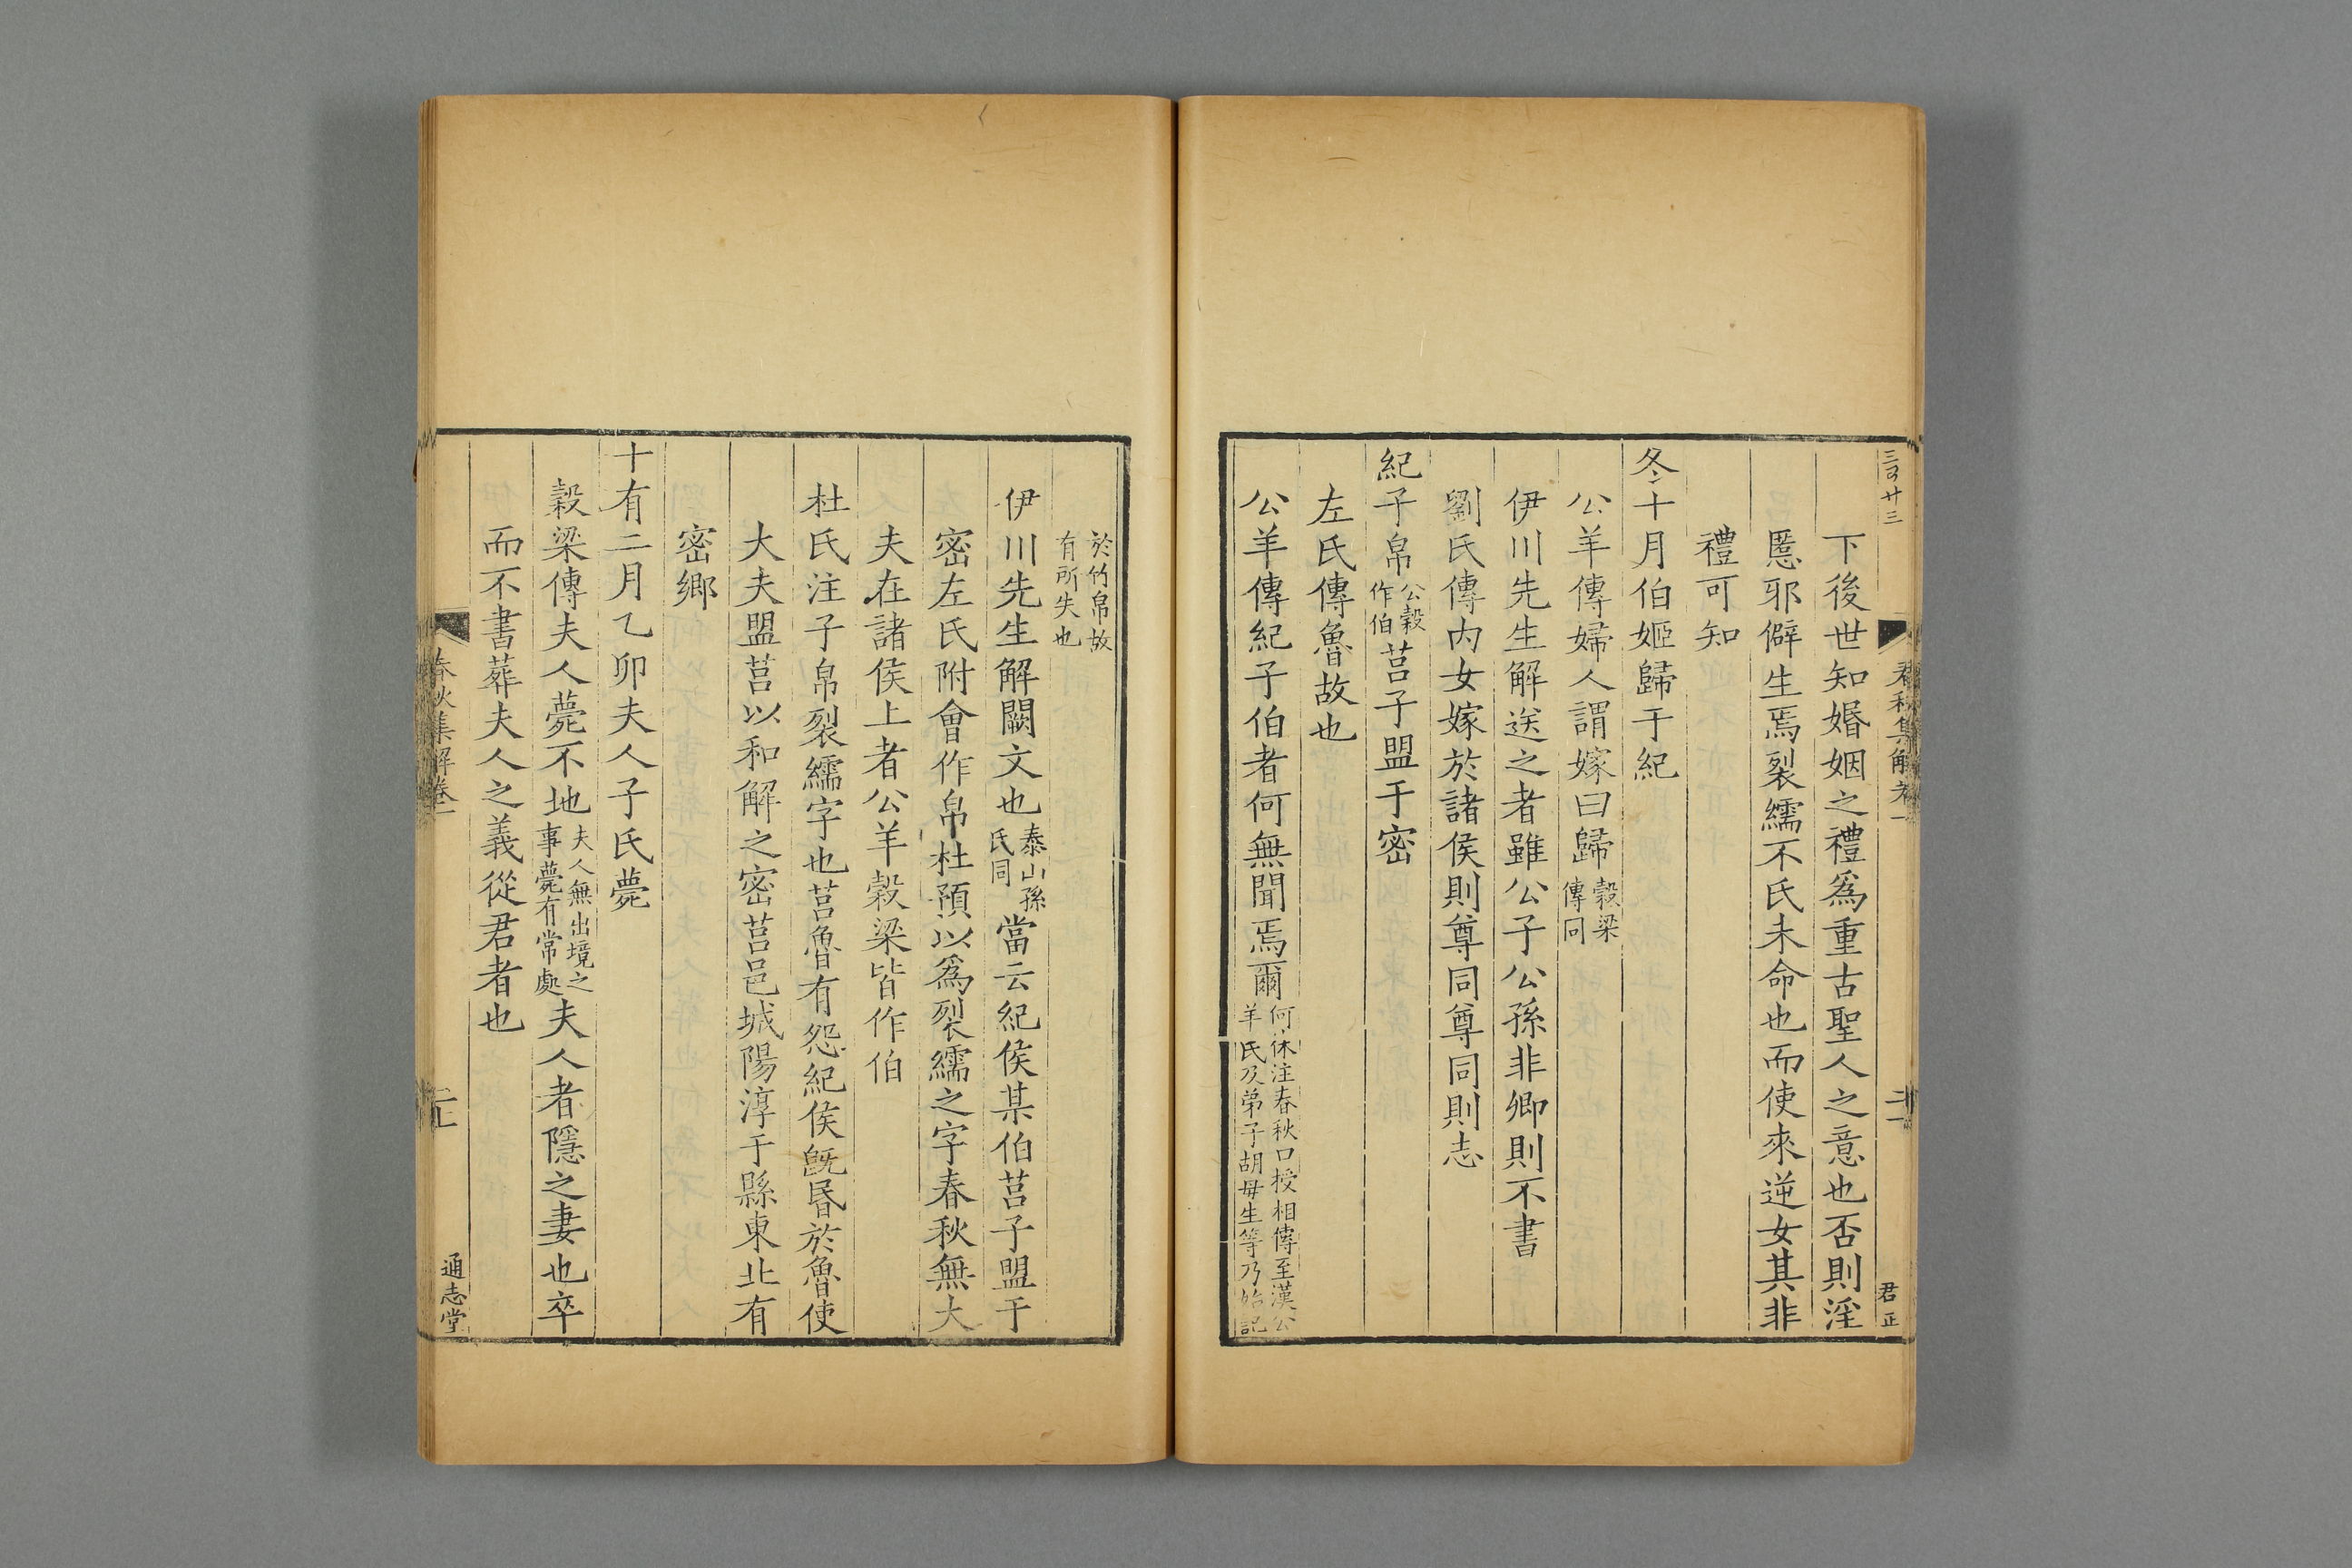 下後世知婚姻之禮爲重古聖人之意也否則淫
慝邪僻生焉裂繻不氏未命也而使來逆女其非
禮可知
冬十月伯姬歸于紀
公羊傳婦人謂嫁曰歸穀梁傳同
伊川先生解送之者雖公子公孫非卿則不書
劉氏傳內女嫁於諸侯則尊同尊同則志
紀子帛公穀作伯莒子盟于密
左氏傳魯故也
公羊傳紀子伯者何無聞焉爾何休注春秋口授相傳至漢公羊氏及弟子胡毋生等乃始記
於竹帛故有所失也
伊川先生解闕文也泰山孫氏同當云紀侯某伯莒子盟于
密左氏附會作帛杜預以爲裂繻之字春秋無大
夫在諸侯上者公羊穀梁皆作伯
杜氏注子帛裂繻字也莒魯有怨紀侯旣昏於魯使
大夫盟莒以和解之密莒邑城陽淳于縣東北有
密鄉
十有二月乙卯夫人子氏薨
穀梁傳夫人薨不地夫人無出境之事薨有常處夫人者隱之妻也卒
而不書葬夫人之義從君者也
春秋集解卷一
通志堂
君正